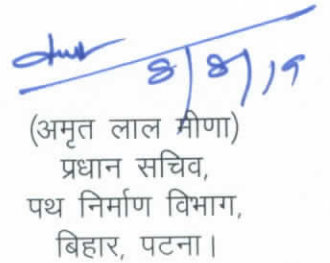 8/8/19
(अमृत लाल मीणा)
प्रधान सचिव,
पथ निर्माण विभाग,
बिहार, पटना।